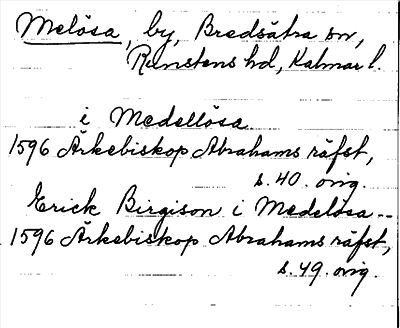 Melösa, by, Bredsätra sn,
Runstens hd, Kalmar l.
i Medellösa
1596 Ärkebiskop Abrahams räfst,
s. 40. orig.
Erick Birgison i Medelösa--
1596 Ärkebiskop Abrahams räfst,
s. 49. orig.